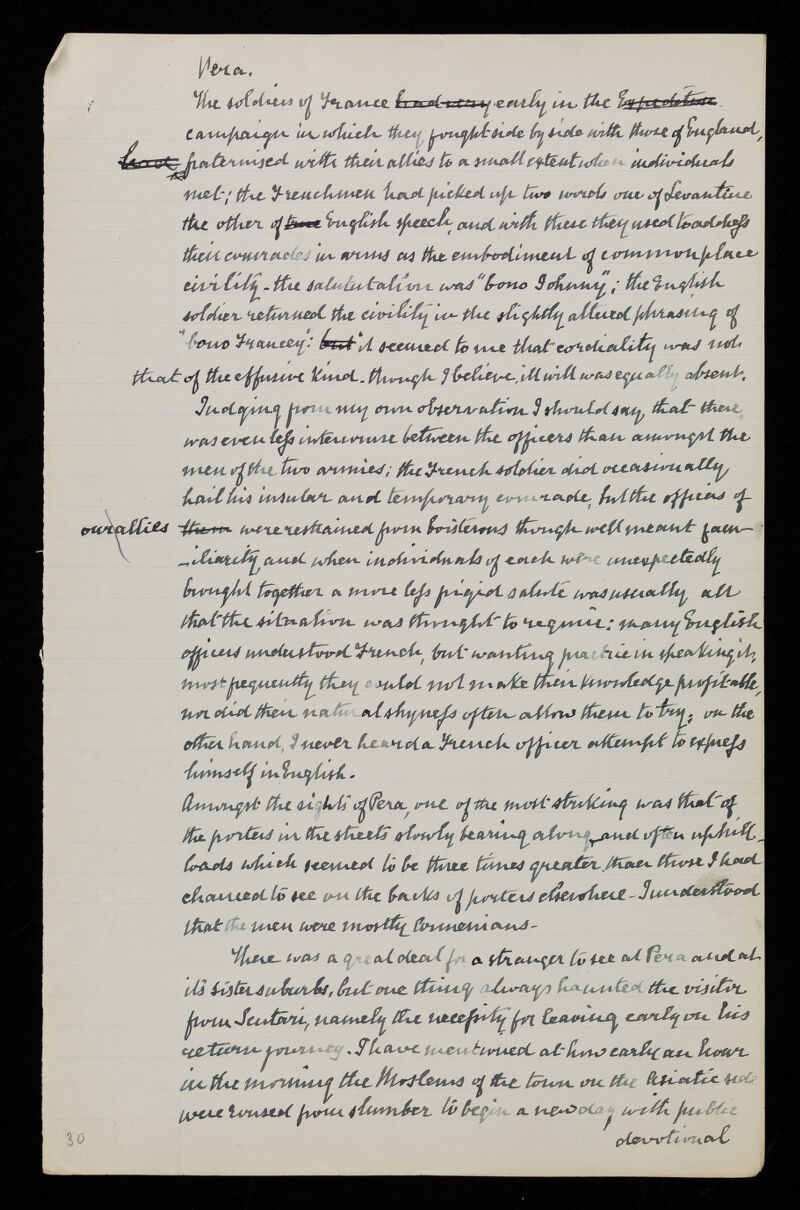 Pera.
The soldiers of France had very early in the Expedition
campaign in which they fought side by side with those of England,
have fraternised with their allies to a small extent when individuals
met; the Frenchmen had picked up two words one of Levantine
the other of true English speech, and with these they used to address
their comrades in arms as the embodiment of commonplace
civility - the salutation was "bono Johnny"; the English
soldier returned the civility in the slightly altered phrasing of
"bono Francey": but it seemed to me that cordiality was not
that of the effusive kind - though I believe, ill will was equally absent.
Judging from my own observation I should say that there
was even less intercourse between the officers than amongst the
men of the two armies; the French soldier did occasionally
hail his insular and temporary comrade, but the officers of
our allies them were restrained from boisterous though well meant fam-
-iliarity and when individuals of each were unexpectedly
brought together a more less frigid salute was usually all
that the situation was thought to require: many English
officers understood French, but wanting practice in speaking it,
most frequently they could not make their knowledge profitable,
nor did their natural shyness often allow them to try; on the
other hand, I never heard a French officer attempt to express
himself in English.
Amongst the sights of Pera, one of the most striking was that of
the porters in the streets slowly bearing along and often uphill -
loads which seemed to be three times greater than those I had
chanced to see on the backs of porters elsewhere - I understood
that the men were mostly Armenians -
There was a great deal for a stranger to see at Pera and at
its sister suburbs, but one thing always haunted the visitor
from Scutari, namely the necessity for leaving early on his
return journey. I have mentioned at how early an hour
in the morning the Moslems of the town on the Asiatic side
were roused from slumber to begin a new day with public
devotional
30